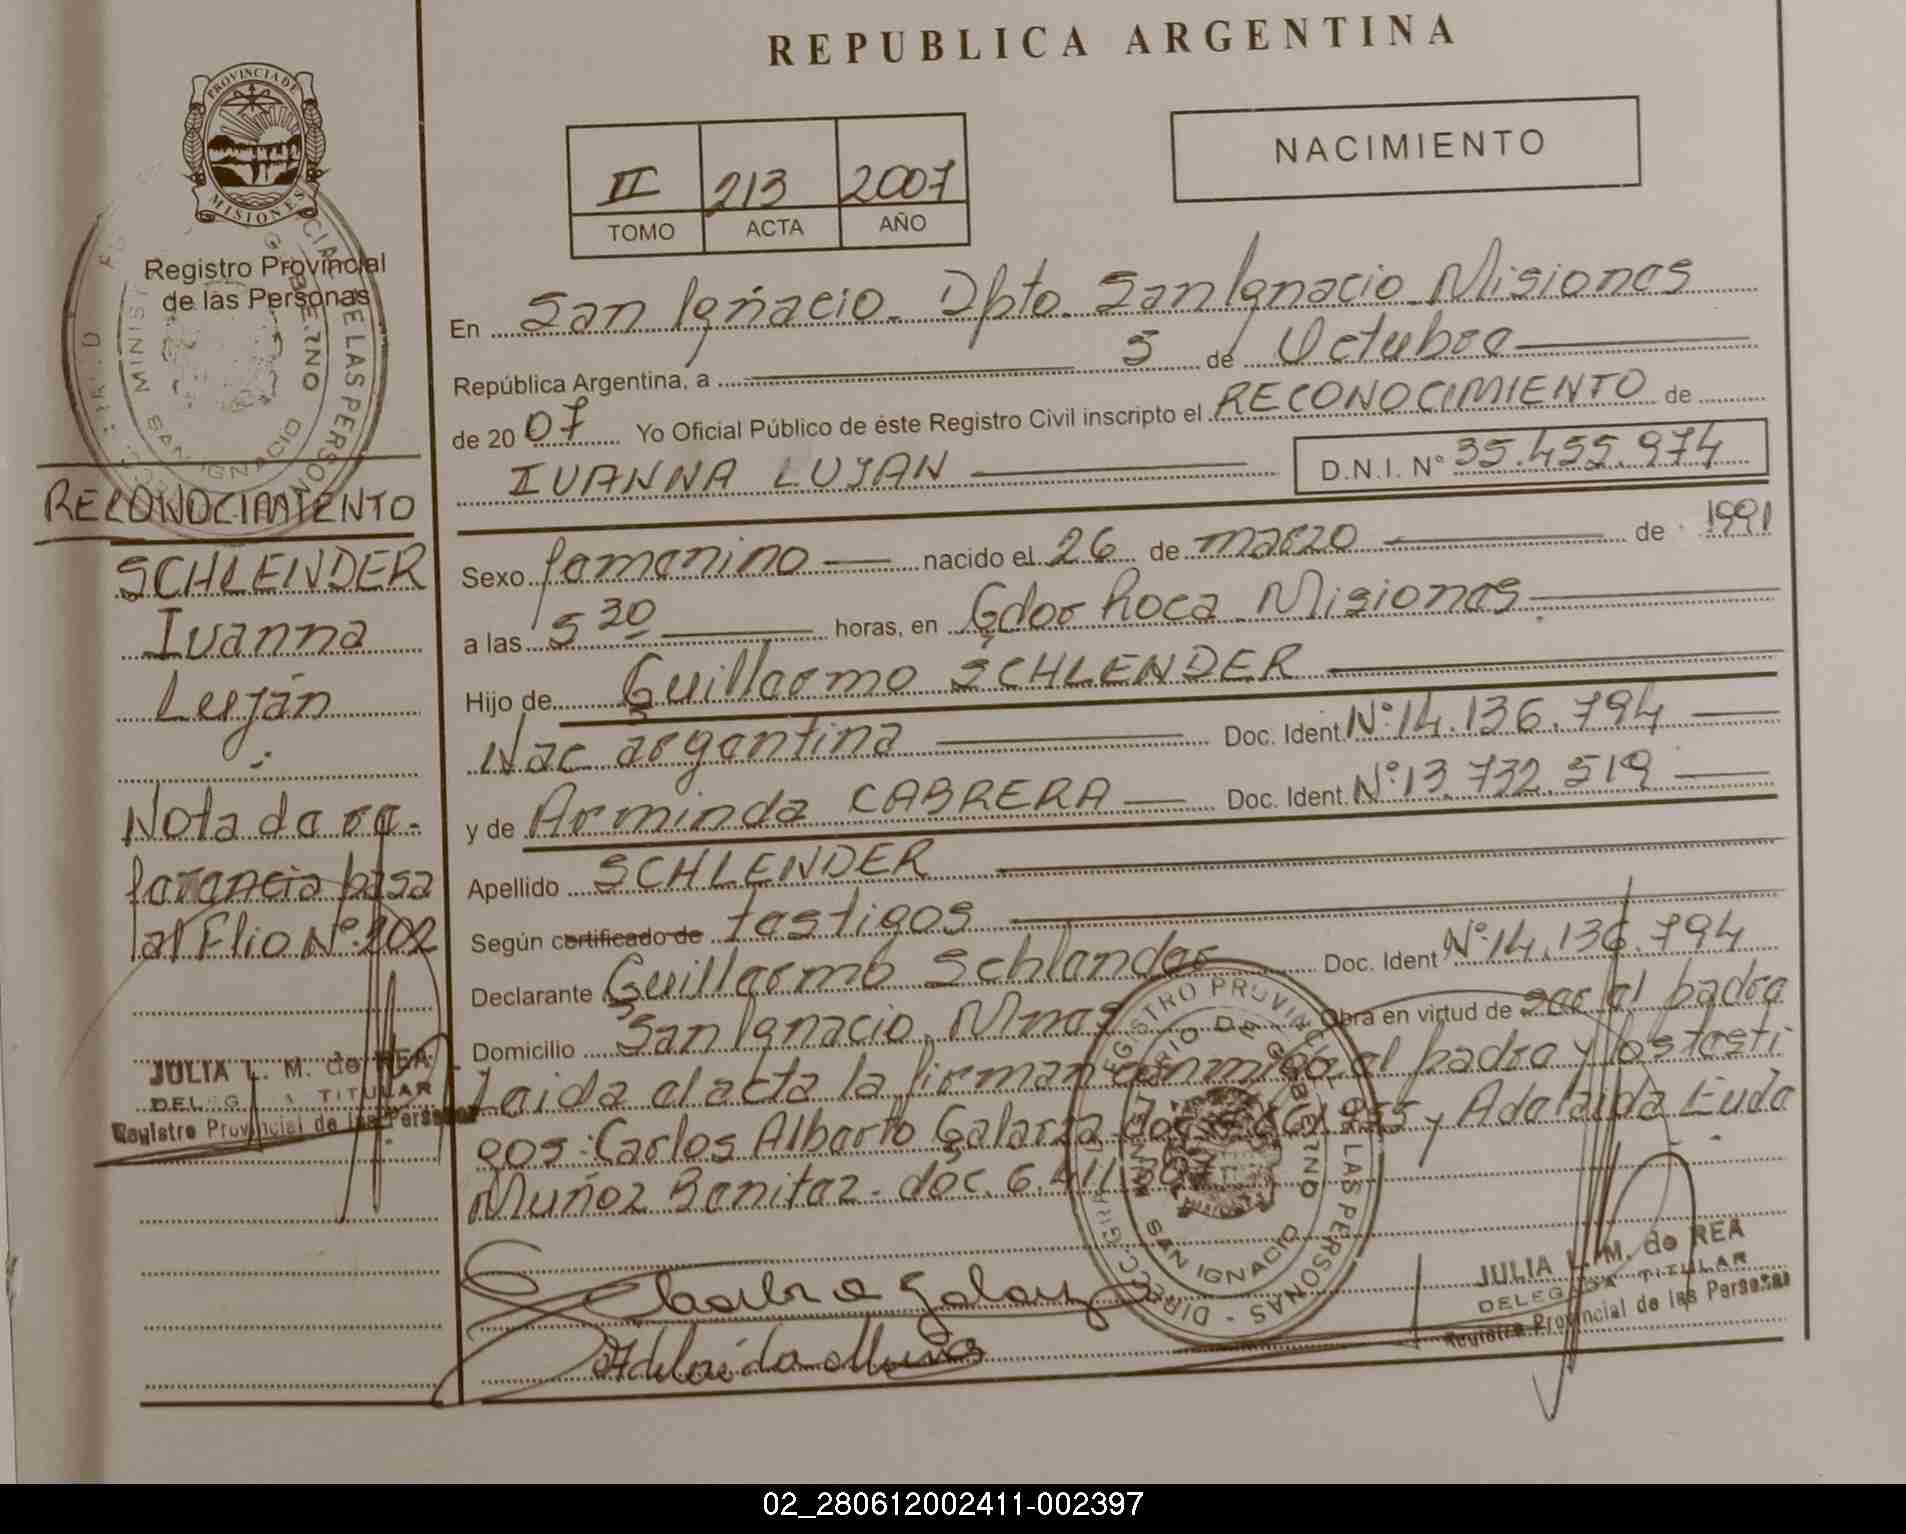 REPUBLICA ARGENTINA
PROVINCIA DE
MISIONES
Registro Provincial
de las Personas
II 213 2007
TOMO ACTA AÑO
NACIMIENTO
En San Ignacio. Dpto. San Ignacio. Misiones
República Argentina, a 5 de Octubre
de 20 07 Yo Oficial Público de éste Registro Civil inscripto el RECONOCIMIENTO de
IVANNA LUJAN D.N.I. N° 35.455.974
Sexo femenino nacido el 26 de marzo de 1991
a las 5 30 horas, en Gdor Roca Misiones
Hijo de Guillermo SCHLENDER
Nac argentina Doc. Ident. N° 14.136.794
y de Arminda CABRERA Doc. Ident. N° 13.732.519
Apellido SCHLENDER
Según certificado de testigos
Declarante Guillermo Schlender Doc. Ident N° 14.136.794
Domicilio San Ignacio. Mnes Obra en virtud de ser el padre
Leida el acta la firman conmigo el padre y los testi
gos: Carlos Alberto Galarza doc 955 y Adelaida Eude
Muñoz Benitez. doc. 6.411.
Adelaida Muño
RECONOCIMIENTO
SCHLENDER
Ivanna
Luján
Nota de re-
ferencia pasa
al Flio N° 202
JULIA L. M. de REA
DELEGADA TITULAR
Registro Provincial de las Personas
REGISTRO PROVINCIAL DE LAS PERSONAS - DIRECC. GRAL
MINISTERIO DE GOBIERNO
SAN IGNACIO
JULIA L. M. de REA
DELEGADA TITULAR
Registro Provincial de las Personas
02_280612002411-002397